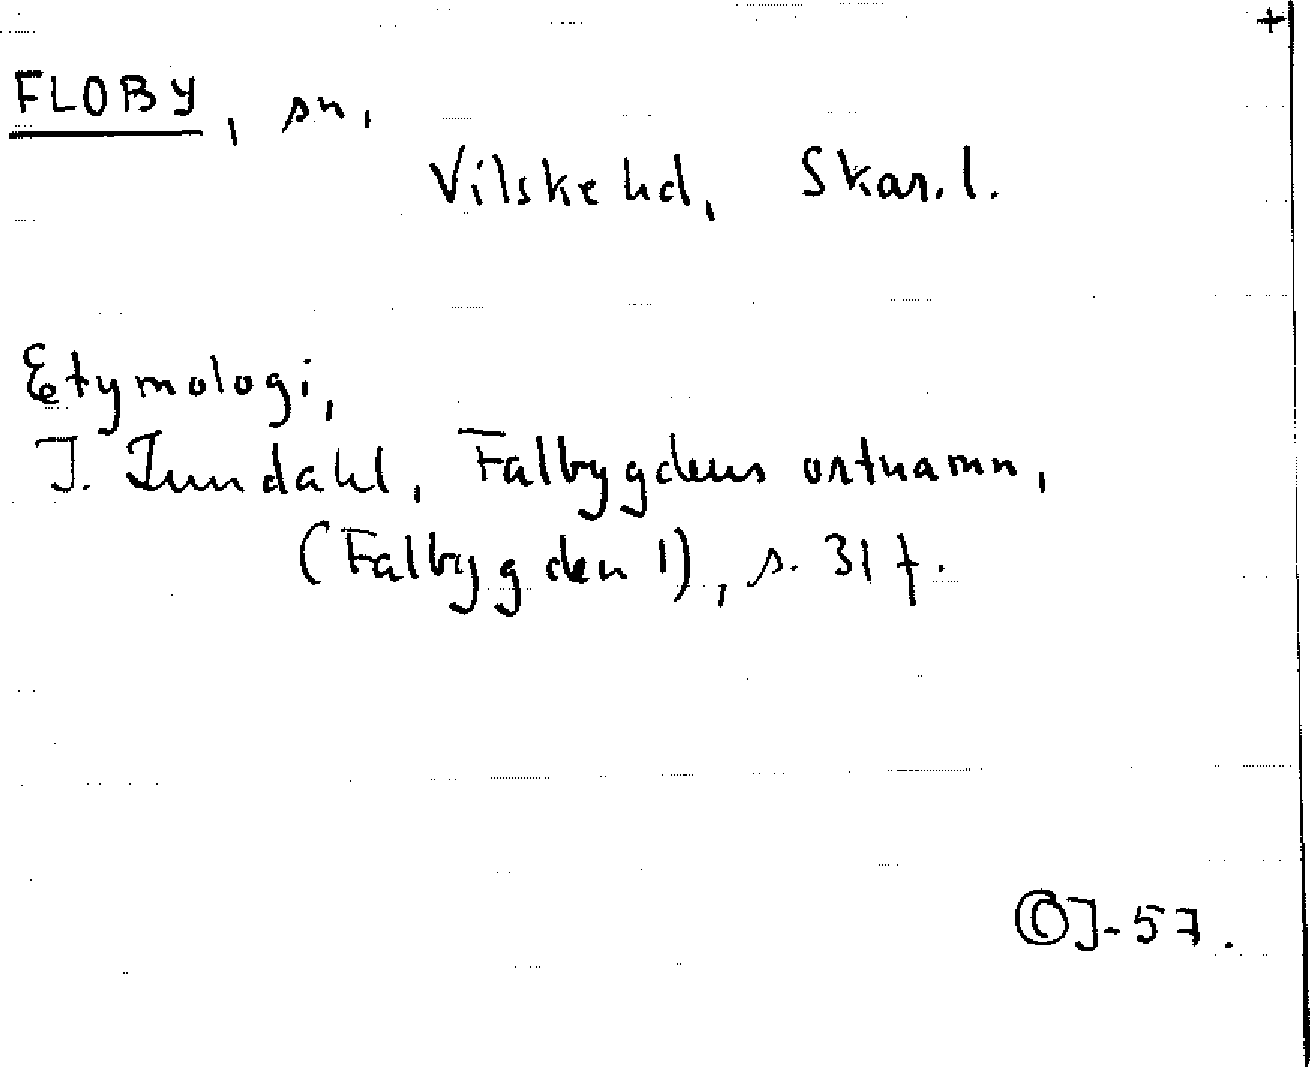 +
FLOBY, sn,
Vilske hd, Skar. l.
Etymologi,
I. Lundahl, Falbygdens ortnamn,
(Falbygden 1), s. 31 f.
OJ-57.